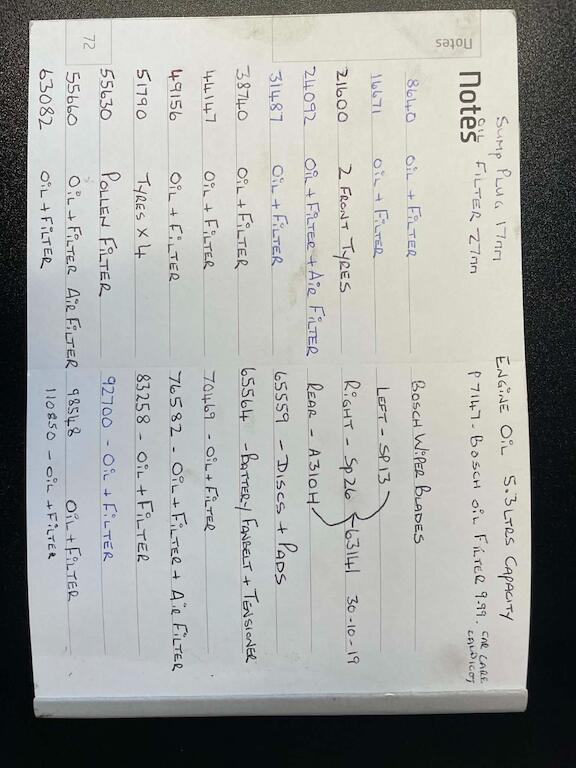 SUMP PLUG 17mm
OIL FILTER 27mm
Notes
Notes
8640 OIL + FILTER
16671 OIL + FILTER
21600 2 FRONT TYRES
24092 OIL + FILTER + AIR FILTER
31487 OIL + FILTER
38740 OIL + FILTER
44147 OIL + FILTER
49156 OIL + FILTER
51790 TYRES X 4
55630 POLLEN FILTER
55660 OIL + FILTER AIR FILTER
63082 OIL + FILTER
72
ENGINE OIL 5.3 LTRS CAPACITY
P7147 - BOSCH OIL FILTER 9.99. CAR CARE
CALDICOT
BOSCH WIPER BLADES
LEFT - SP13
RIGHT - SP26 63141 30-10-19
REAR - A310H
65559 - DISCS + PADS
65564 - BATTERY/FANBELT + TENSIONER
70469 - OIL + FILTER
76582 - OIL + FILTER + AIR FILTER
83258 - OIL + FILTER
92700 - OIL + FILTER
98548 OIL + FILTER
110850 - OIL + FILTER